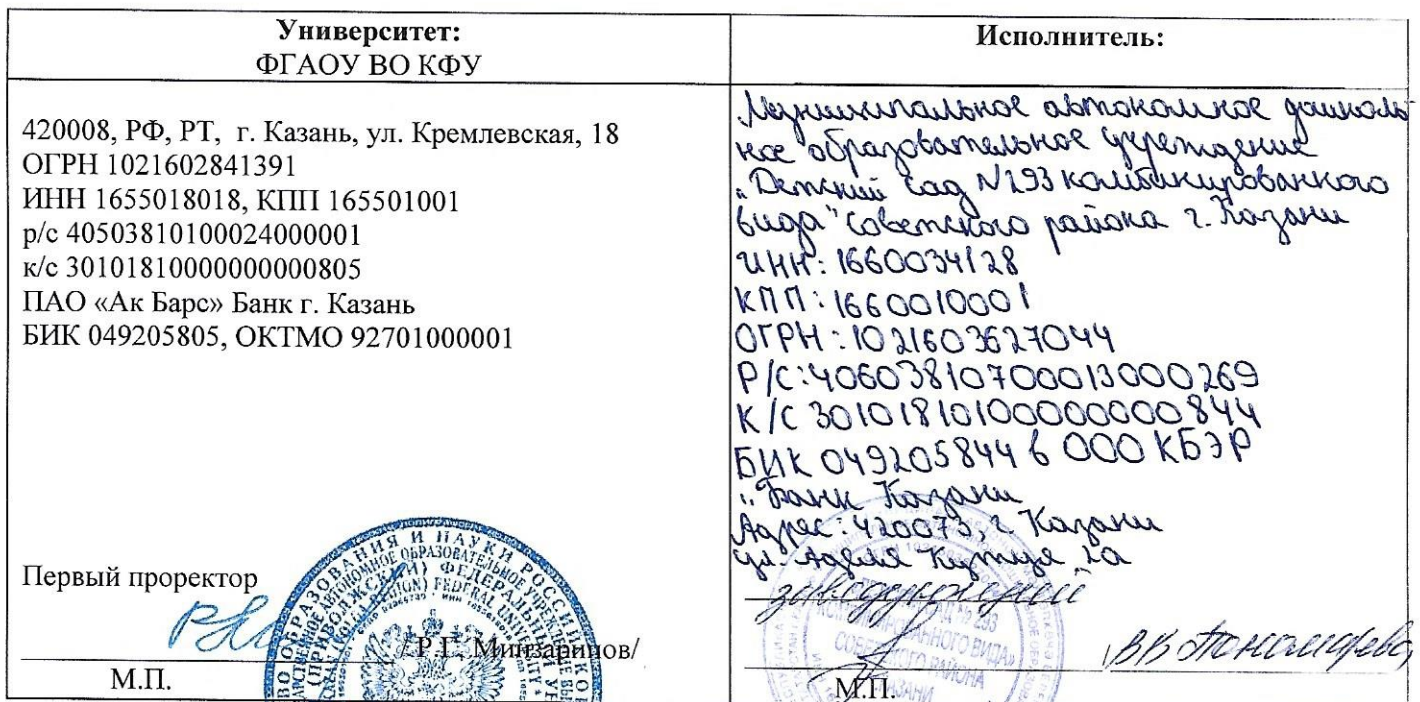 Университет:
ФГАОУ ВО КФУ
420008, РФ, РТ, г. Казань, ул. Кремлевская, 18
ОГРН 1021602841391
ИНН 1655018018, КПП 165501001
р/с 40503810100024000001
к/с 30101810000000000805
ПАО «Ак Барс» Банк г. Казань
БИК 049205805, ОКТМО 92701000001
Первый проректор
/Р.Г. Минзарипов/
М.П.
Исполнитель:
Муниципальное автономное дошколь
ное образовательное учреждение
„Детский сад №293 комбинированного
вида" Советского района г. Казани
ИНН: 1660034128
КПП: 166001001
ОГРН: 1021603627044
Р/С: 40603810700013000269
К/С 30101810100000000844
БИК 049205844 в ООО КБЭР
„Банк Казани
Адрес: 420073, г. Казани
ул. Аделя Кутуя, 2а
заведующий
М.П.